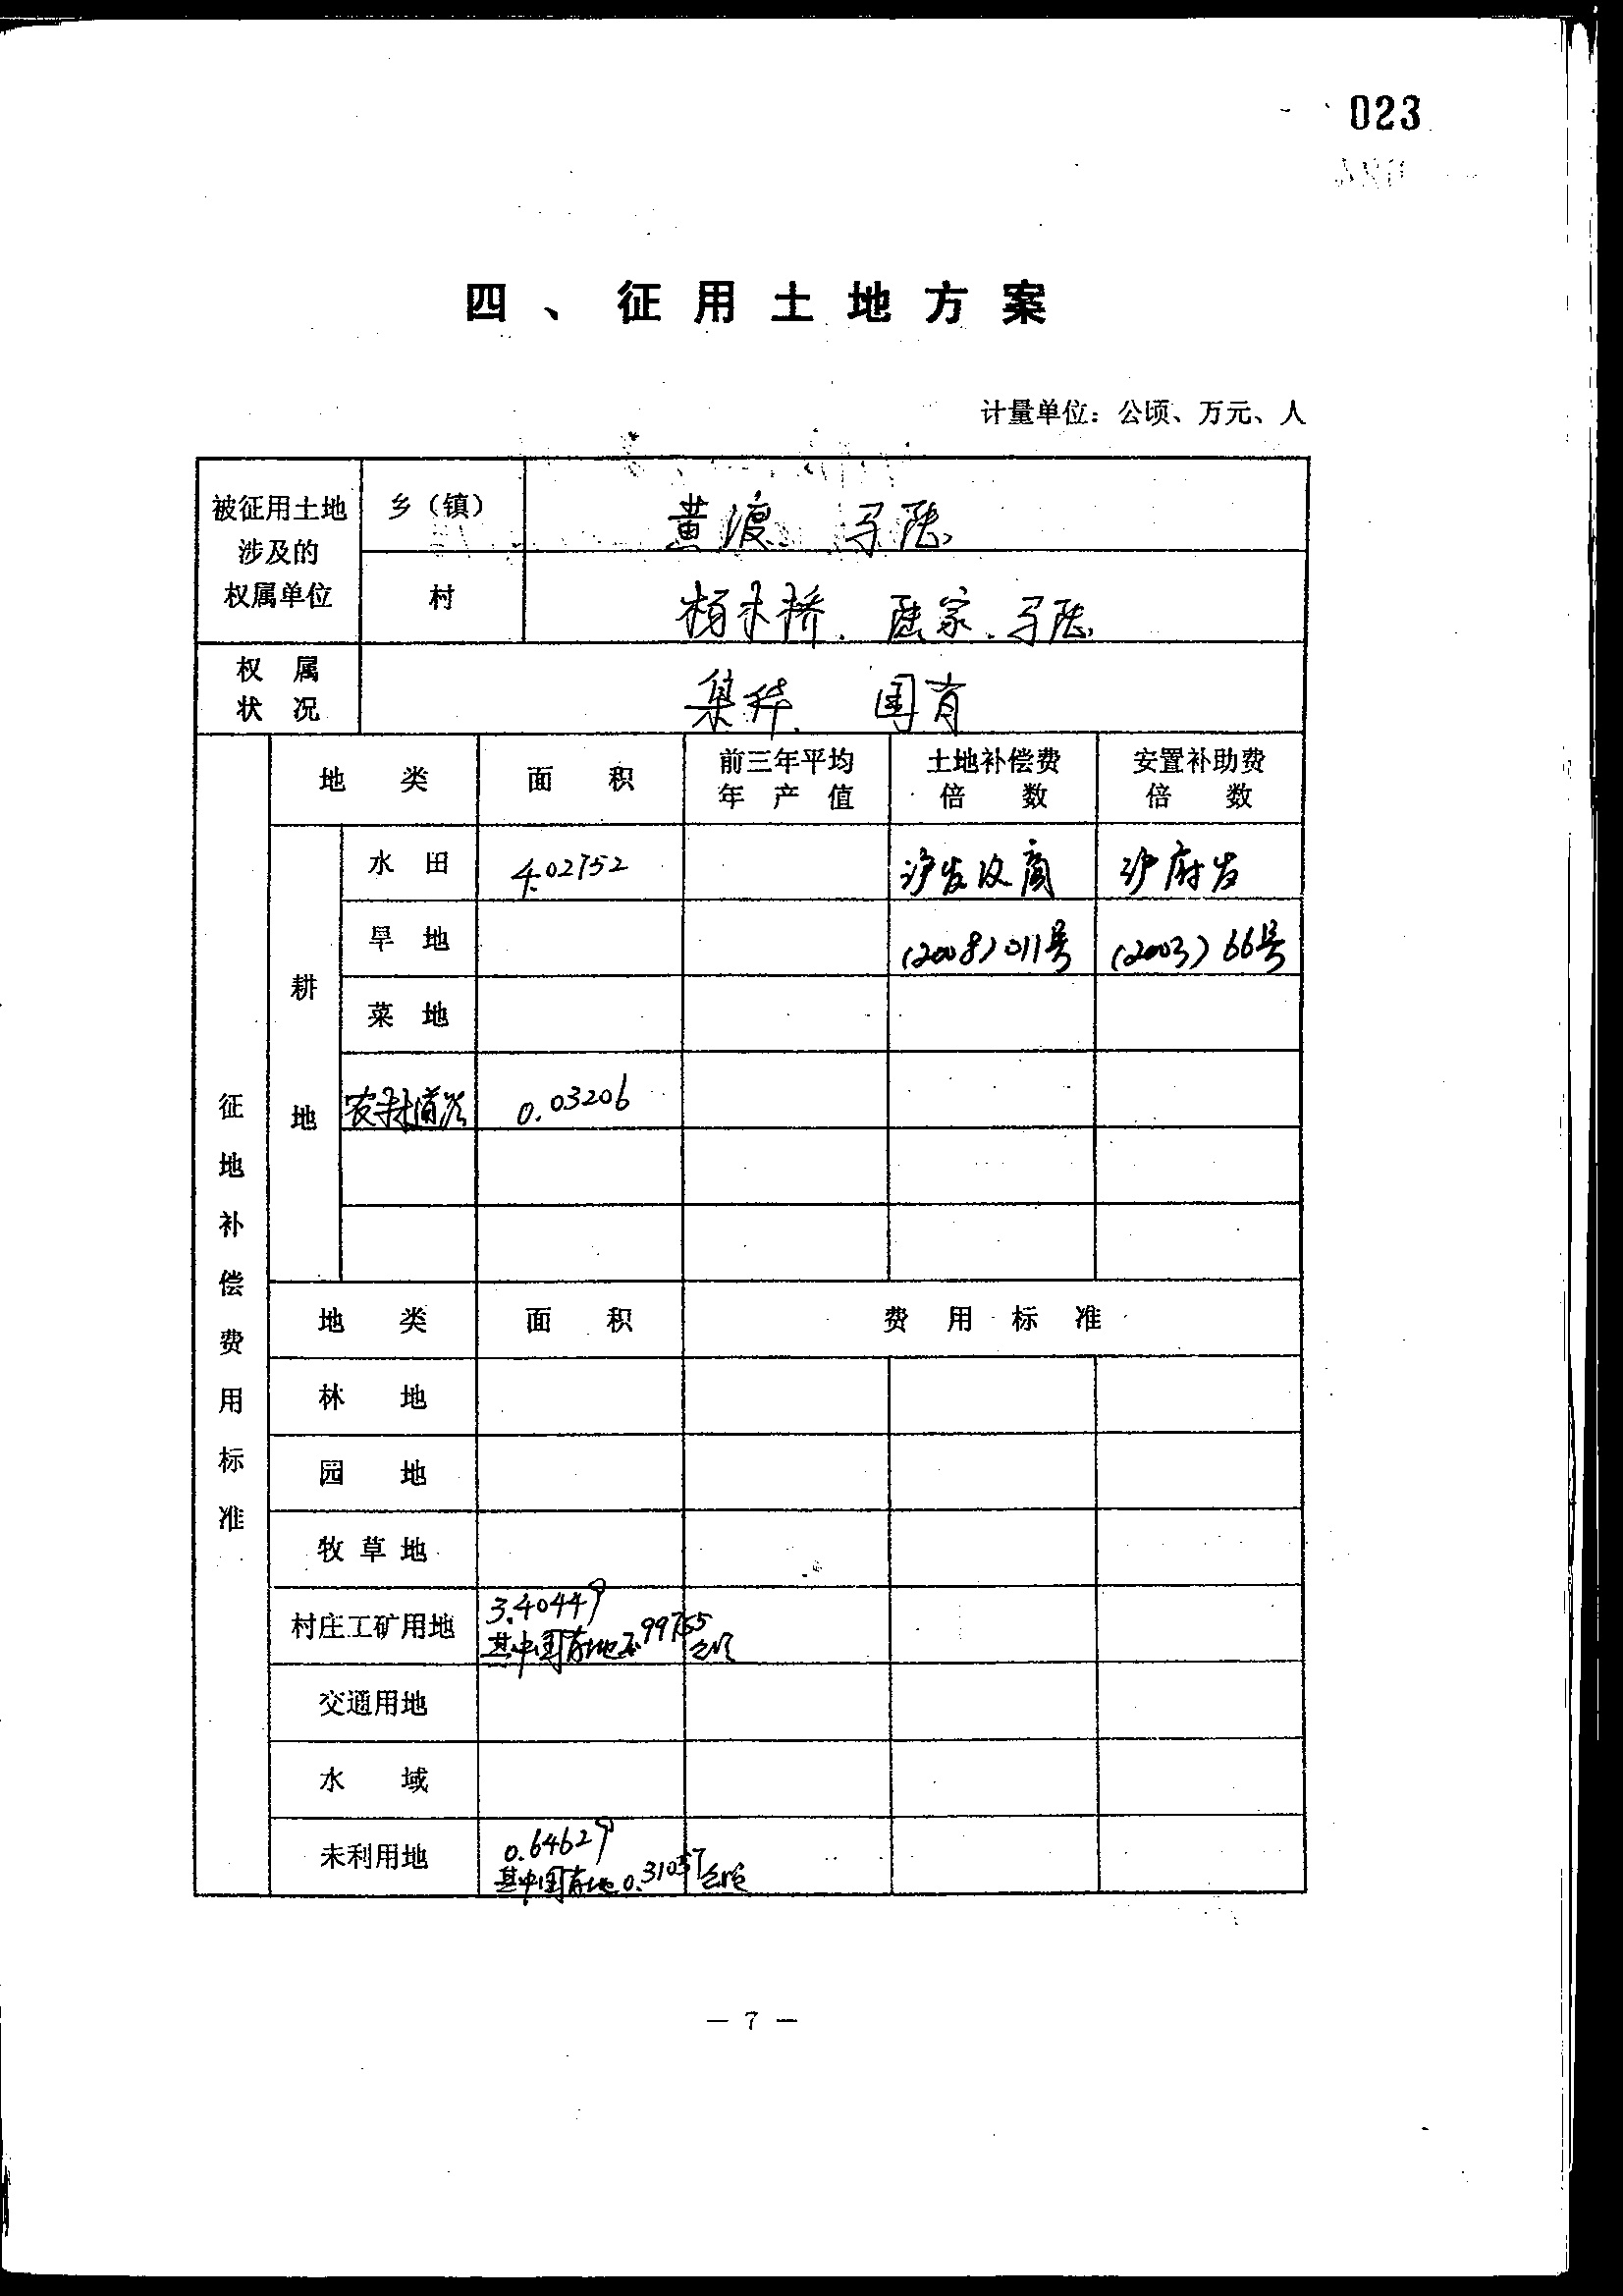 023
四、征用土地方案
计量单位：公顷、万元、人
被征用土地涉及的权属单位 乡（镇） 黄渡、马陆
村 杨木桥、陆家、马陆
权属状况 集体、国有
征地补偿费用标准
地类 面积 前三年平均年产值 土地补偿费倍数 安置补助费倍数
耕地
水田 4.02752 沪发改商 沪府发
旱地 (2008)011号 (2003)66号
菜地
农村道路 0.03206
地类 面积 费用标准
林地
园地
牧草地
村庄工矿用地 3.40449
其中国有地 公顷
交通用地
水域
未利用地 0.64629
其中国有地0.31057公顷
— 7 —